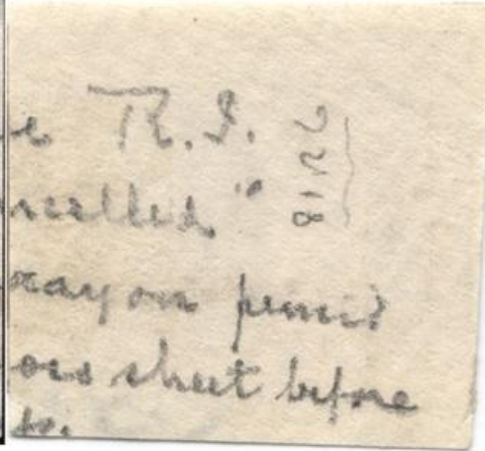 R.I.
ncelled"
rayon pencil
oss sheet before